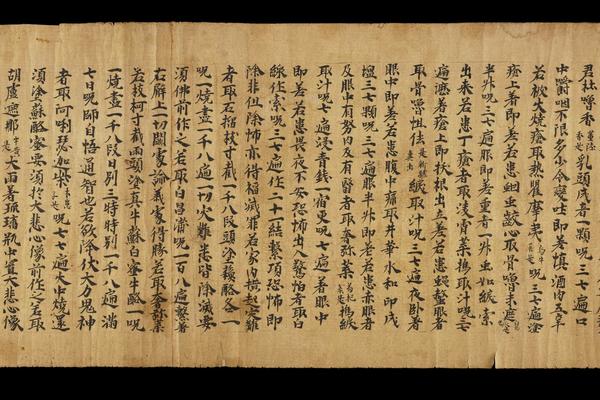 君杜嚕香薰陸香乳頭成者一顆呪三七遍口
中嚼咽不限多少令變吐即差慎酒肉五辛
若被火燒瘡取熱瞿摩夷呪三七遍塗
瘡上者即差若患蛔虫齩心取骨嚕末遮
半升呪三七遍服即差重者一升虫如綟索
出來若患丁瘡者取凌霄葉搗取汁呪三七
遍瀝著瘡上即拔根出立差若患蠅螫眼者
取骨嚕怛佉綟取汁呪三七遍夜臥著
眼中即差若患腹中痛取井華水和印成
塩三七顆呪三七遍服半升即差若患赤眼者
及眼中有努肉及有翳者取奢奢弥葉搗綟
取汁呪三七遍浸青錢一宿更呪七遍著眼中
即差若患畏夜不安恐怖出入驚怕者取白
綫作索呪三七遍作二十一結繫項恐怖即
除非但除怖亦得福滅罪若家內橫起災難
者取石榴枝寸截一千八段頭塗蘇酪各一
呪一燒盡一千八遍一切災難悉皆除滅要
須佛前作之若取白昌蒲呪一百八遍繫著
右臂上一切鬪處論義處得勝若取奢弥葉
若枝柯寸截兩頭塗真牛蘇白蜜牛酪一呪
一燒盡一千八段日別三時時別一千八遍滿
七日呪師自悟通智也若欲降伏大力鬼神
者取阿唎瑟迦柴呪七七遍火中燒還
須塗蘇酪蜜要須於大悲心像前作之若取
胡盧遮那一大兩著瑠璃瓶中置大悲心像